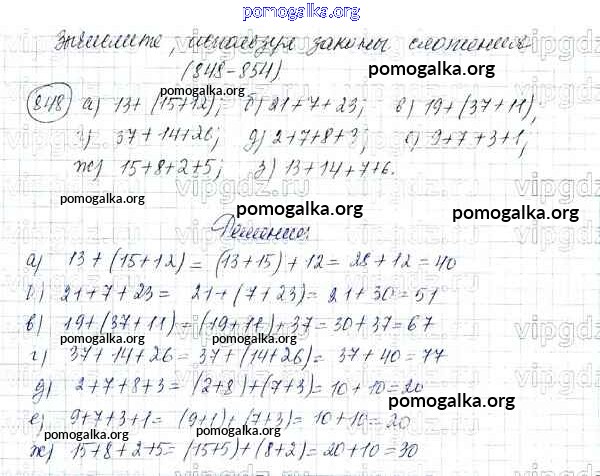 pomogalka.org
Вычислите, используя законы сложения
(848-854)
pomogalka.org
848 а) 13+(15+12); б) 21+7+23; в) 19+(37+11);
г) 37+14+26; д) 2+7+8+3; е) 9+7+3+1;
ж) 15+8+2+5; з) 13+14+7+6.
pomogalka.org
pomogalka.org pomogalka.org
Решение:
а) 13+(15+12)=(13+15)+12=28+12=40
pomogalka.org
б) 21+7+23= 21+(7+23)=21+30=51
в) 19+(37+11)=(19+11)+37=30+37=67
pomogalka.org pomogalka.org
г) 37+14+26=37+(14+26)= 37+40=77
д) 2+7+8+3= (2+8)+(7+3)=10+10=20
pomogalka.org
е) 9+7+3+1= (9+1)+(7+3)=10+10=20
pomogalka.org pomogalka.org
ж) 15+8+2+5=(15+5)+(8+2)=20+10=30